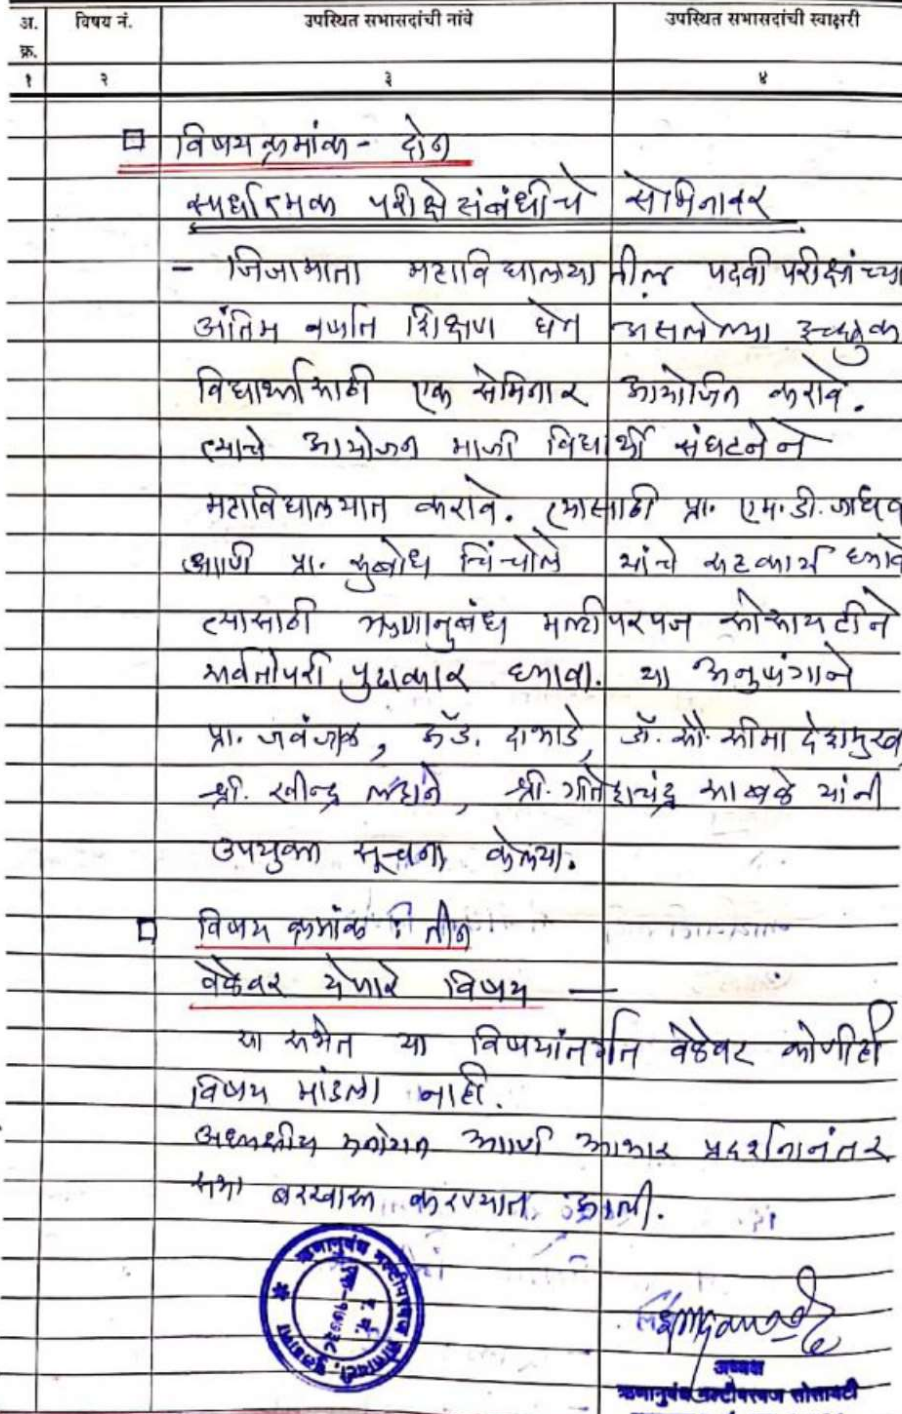 अ. क्र. विषय नं. उपस्थित सभासदांची नांवे उपस्थित सभासदांची स्वाक्षरी
१ २ ३ ४
विषय क्रमांक - दोन
स्पर्धात्मक परीक्षेसंबंधीचे सेमिनार
- जिजामाता महाविद्यालयातील पदवी परीक्षांच्या
अंतिम वर्षात शिक्षण घेत असलेल्या इच्छुक
विद्यार्थ्यांसाठी एक सेमिनार आयोजित करावे.
त्याचे आयोजन माजी विद्यार्थी संघटनेने
महाविद्यालयात करावे. त्यासाठी प्रा. एम. डी. जाधव
आणि प्रा. सुबोध चिंचोले यांचे सहकार्य घ्यावे
त्यासाठी ऋणानुबंध मल्टीपरपज सोसायटीने
सर्वतोपरी पुढाकार घ्यावा. या अनुषंगाने
प्रा. जवंजाळ, अॅड. दाभाडे, डॉ. सौ. सीमा देशमुख,
श्री. रवीन्द्र लहाने, श्री. गीतेशचंद्र साबळे यांनी
उपयुक्त सूचना केल्या.
विषय क्रमांक : तीन
वेळेवर येणारे विषय —
या सभेत या विषयांतर्गत वेळेवर कोणीही
विषय मांडला नाही.
अध्यक्षीय मनोगत आणि आभार प्रदर्शनानंतर
सभा बरखास्त करण्यात आली.
ऋणानुबंध मल्टीपरपज सोसायटी, बुलडाणा
अध्यक्ष
ऋणानुबंध मल्टीपरपज सोसायटी